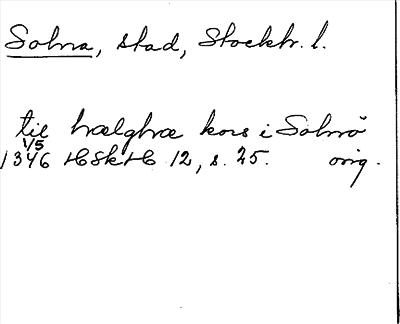 Solna, stad, Stockh. l.
til hælghæ kors i Solnö
1/5
1346 HSkH 12, s. 25. orig.